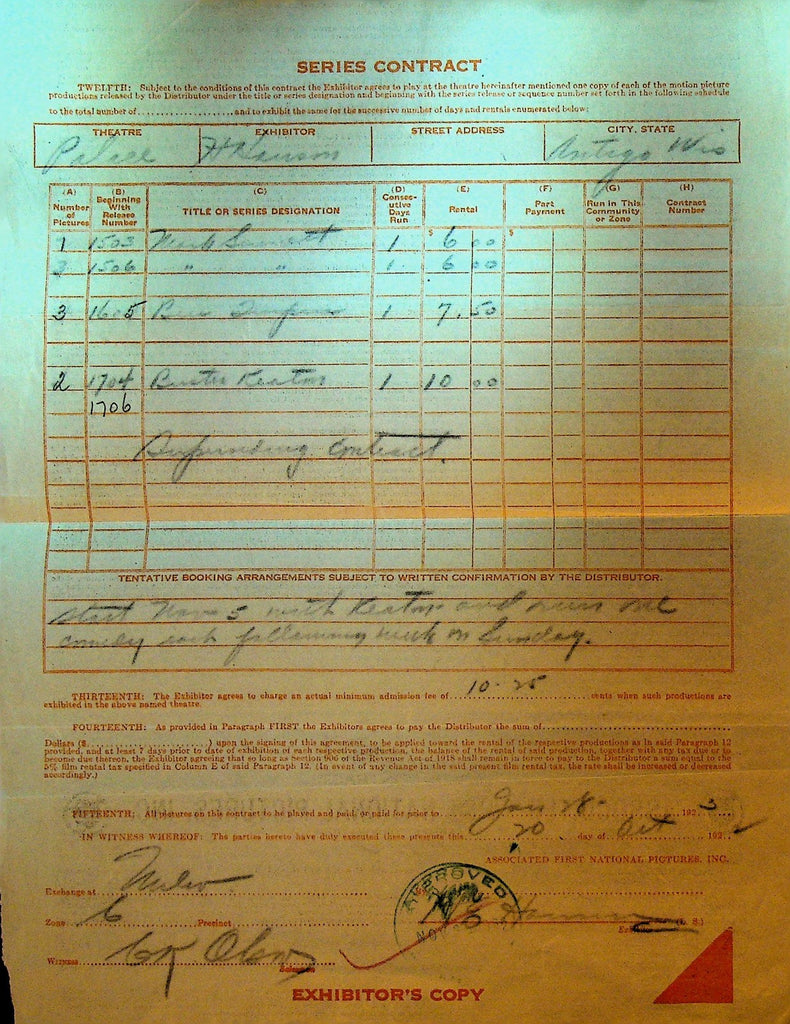 SERIES CONTRACT
TWELFTH: Subject to the conditions of this contract the Exhibitor agrees to play at the theatre hereinafter mentioned one copy of each of the motion picture
productions released by the Distributor under the title or series designation and beginning with the series release or sequence number set forth in the following schedule
to the total number of and to exhibit the same for the successive number of days and rentals enumerated below:
THEATRE EXHIBITOR STREET ADDRESS CITY, STATE
Palace Hanson Antigo Wis
(A) (B) (C) (D) (E) (F) (G) (H)
Number of Pictures Beginning With Release Number TITLE OR SERIES DESIGNATION Consecutive Days Run Rental Part Payment Run in This Community or Zone Contract Number
1 1503 Mack Sennett 1 $ 6 00 $
3 1506 " " 1 6 00
3 1605 Ben Turpin 1 7.50
2 1704 Buster Keaton 1 10 00
1706
contract.
TENTATIVE BOOKING ARRANGEMENTS SUBJECT TO WRITTEN CONFIRMATION BY THE DISTRIBUTOR.
Start Nov 5 with Keaton and run one
comedy each following week on Sunday.
THIRTEENTH: The Exhibitor agrees to charge an actual minimum admission fee of 10-25 cents when such productions are
exhibited in the above named theatre.
FOURTEENTH: As provided in Paragraph FIRST the Exhibitors agrees to pay the Distributor the sum of
Dollars ($ ) upon the signing of this agreement, to be applied toward the rental of the respective productions as in said Paragraph 12
provided, and at least 7 days prior to date of exhibition of each respective production, the balance of the rental of said production, together with any tax due or to
become due thereon, the Exhibitor agreeing that so long as Section 906 of the Revenue Act of 1918 shall remain in force to pay to the Distributor a sum equal to the
5% film rental tax specified in Column E of said Paragraph 12. (In event of any change in the said present film rental tax, the rate shall be increased or decreased
accordingly.)
FIFTEENTH: All pictures on this contract to be played and paid, or paid for prior to Jan 28 1923
IN WITNESS WHEREOF: The parties hereto have duly executed these presents this 20 day of Oct 1922
ASSOCIATED FIRST NATIONAL PICTURES, INC.
Exchange at Milw
APPROVED
Zone 6 Precinct
Witness
EXHIBITOR'S COPY